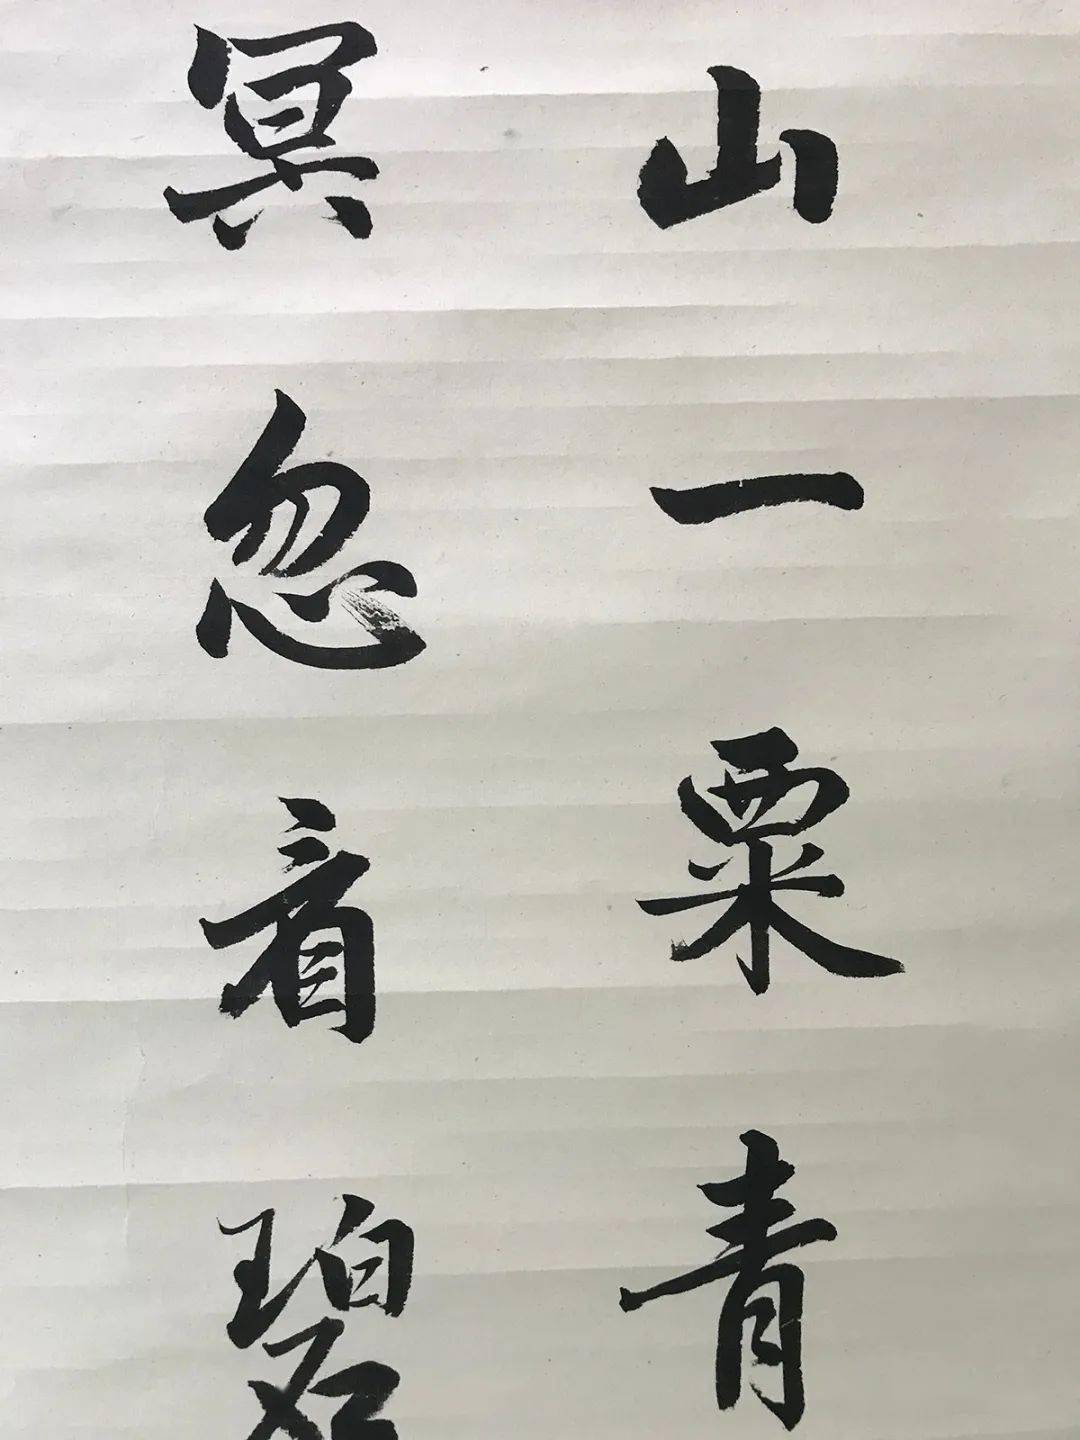 山一粟青
冥忽看碧